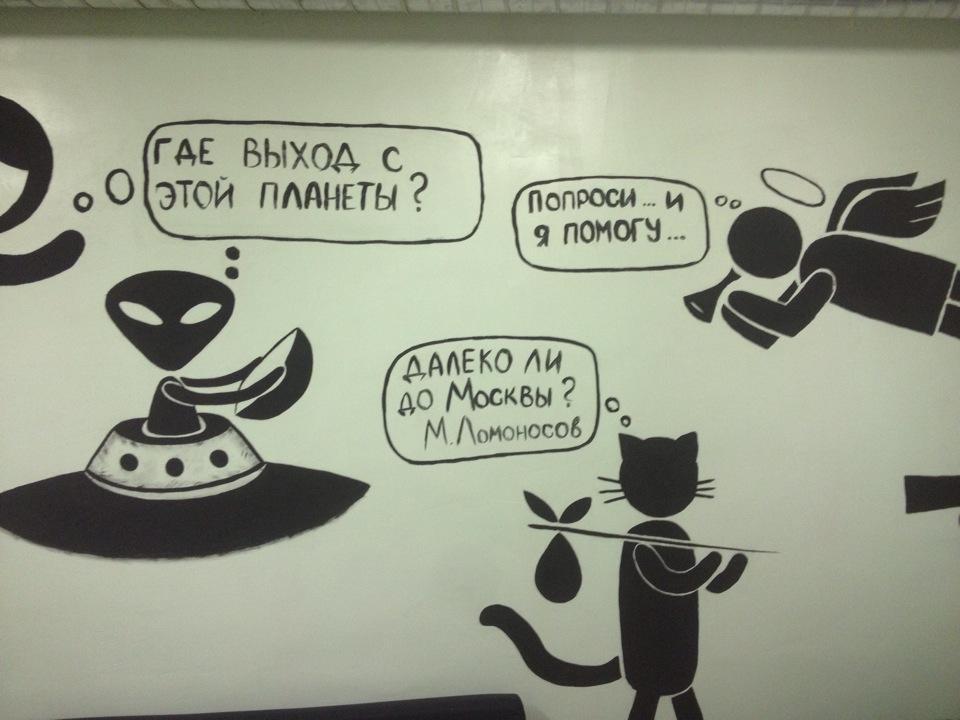 ГДЕ ВЫХОД С
ЭТОЙ ПЛАНЕТЫ?
ПОПРОСИ... И
Я ПОМОГУ...
ДАЛЕКО ЛИ
ДО МОСКВЫ?
М.ЛОМОНОСОВ